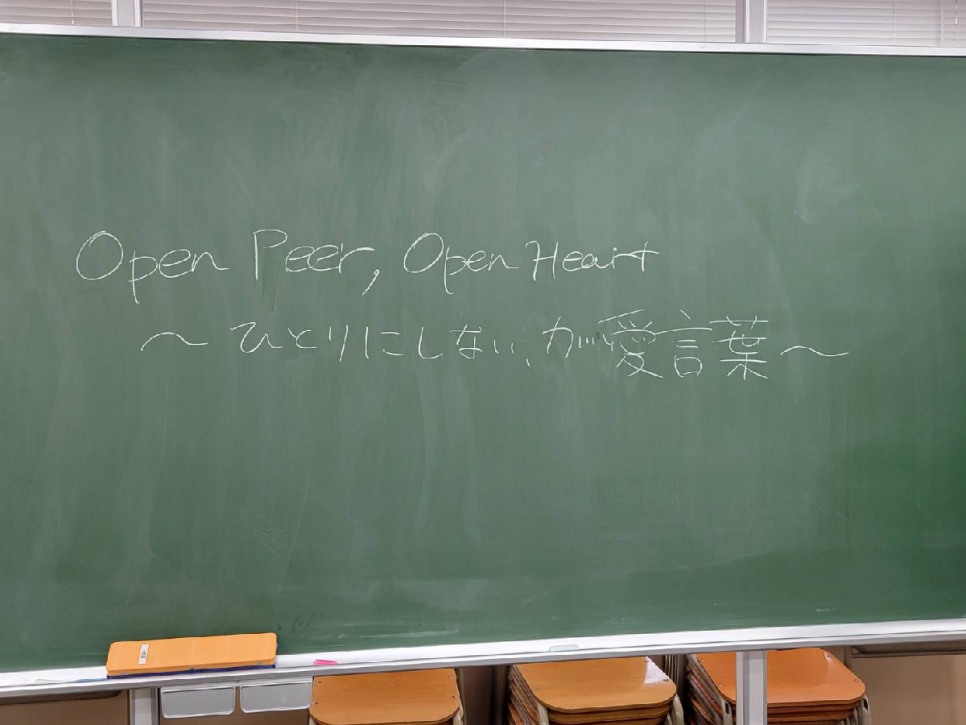 Open Peer, Open Heart
～ひとりにしない、が愛言葉～